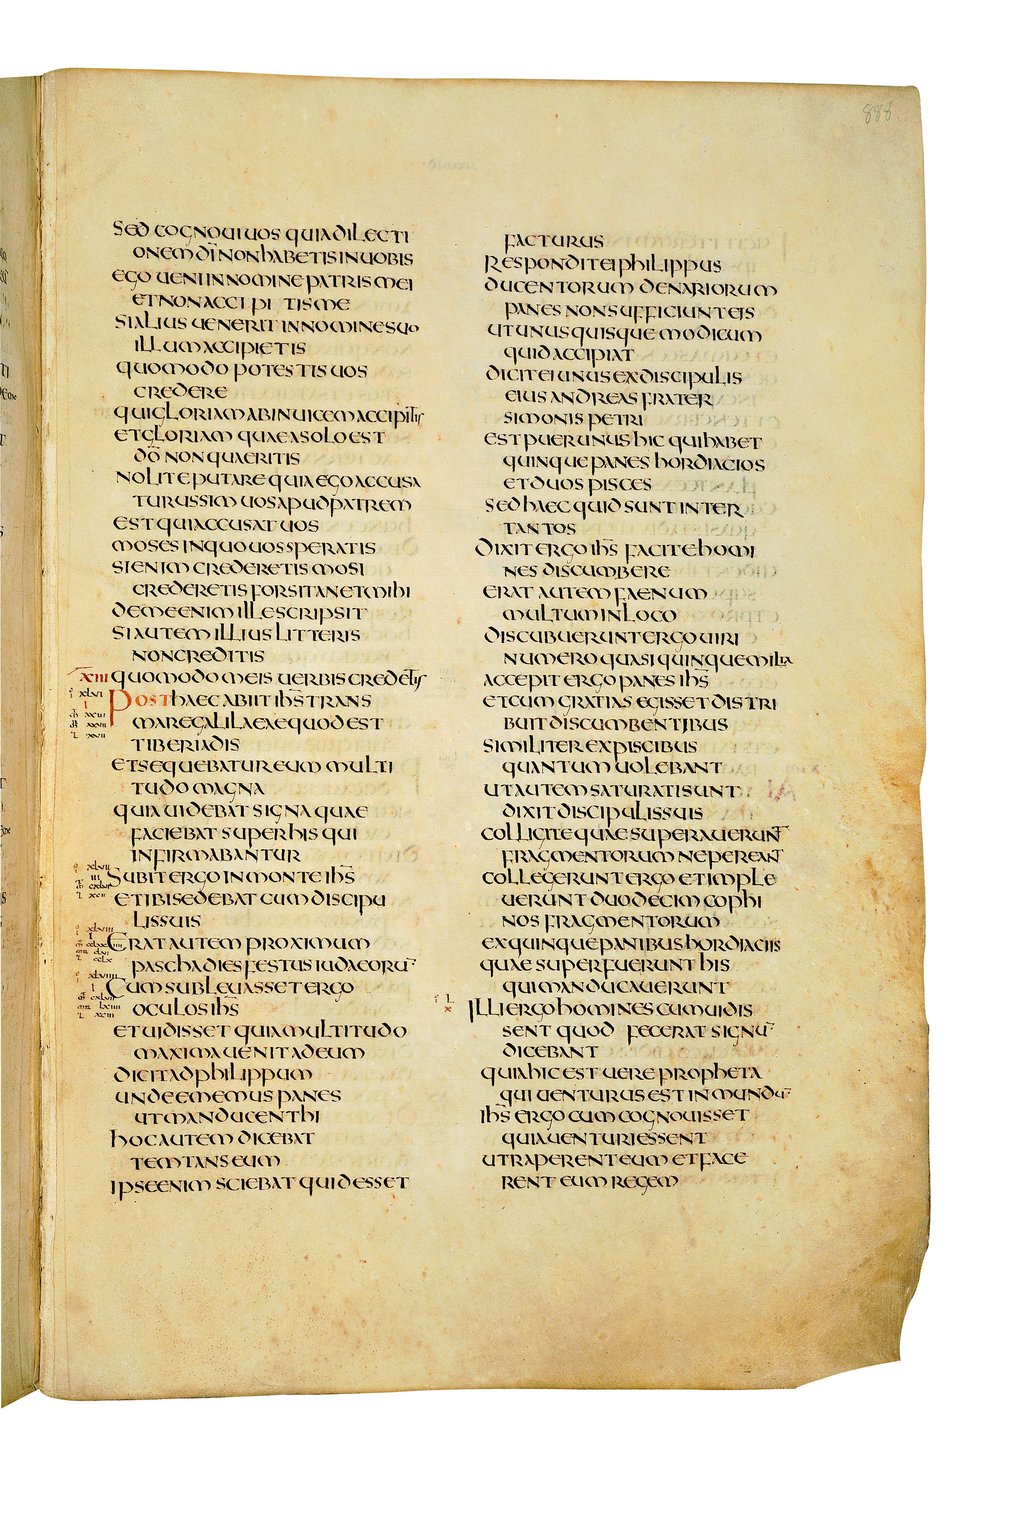 888
SED COGNOUI UOS QUIA DILECTI
ONEM DI NON HABETIS IN UOBIS
EGO UENI IN NOMINE PATRIS MEI
ET NON ACCIPITIS ME
SI ALIUS UENERIT IN NOMINE SUO
ILLUM ACCIPIETIS
QUOMODO POTESTIS UOS
CREDERE
QUI GLORIAM AB INUICEM ACCIPITIS
ET GLORIAM QUAE A SOLO EST
DO NON QUAERITIS
NOLITE PUTARE QUIA EGO ACCUSA
TURUS SIM UOS APUD PATREM
EST QUI ACCUSAT UOS
MOSES IN QUO UOS SPERATIS
SI ENIM CREDERETIS MOSI
CREDERETIS FORSITAN ET MIHI
DE ME ENIM ILLE SCRIPSIT
SI AUTEM ILLIUS LITTERIS
NON CREDITIS
XIII QUOMODO MEIS UERBIS CREDETIS
POST HAEC ABIIT IHS TRANS
MARE GALILAEAE QUOD EST
TIBERIADIS
ET SEQUEBATUR EUM MULTI
TUDO MAGNA
QUIA UIDEBAT SIGNA QUAE
FACIEBAT SUPER HIS QUI
INFIRMABANTUR
SUBIT ERGO IN MONTE IHS
ET IBI SEDEBAT CUM DISCIPU
LIS SUIS
ERAT AUTEM PROXIMUM
PASCHA DIES FESTUS IUDAEORU
CUM SUBLEUASSET ERGO
OCULOS IHS
ET UIDISSET QUIA MULTITUDO
MAXIMA UENIT AD EUM
DICIT AD PHILIPPUM
UNDE EMEMUS PANES
UT MANDUCENT HI
HOC AUTEM DICEBAT
TEMTANS EUM
IPSE ENIM SCIEBAT QUID ESSET
FACTURUS
RESPONDIT EI PHILIPPUS
DUCENTORUM DENARIORUM
PANES NON SUFFICIUNT EIS
UT UNUSQUISQUE MODICUM
QUID ACCIPIAT
DICIT EI UNUS EX DISCIPULIS
EIUS ANDREAS FRATER
SIMONIS PETRI
EST PUER UNUS HIC QUI HABET
QUINQUE PANES HORDIACIOS
ET DUOS PISCES
SED HAEC QUID SUNT INTER
TANTOS
DIXIT ERGO IHS FACITE HOMI
NES DISCUMBERE
ERAT AUTEM FAENUM
MULTUM IN LOCO
DISCUBUERUNT ERGO UIRI
NUMERO QUASI QUINQUE MILIA
ACCEPIT ERGO PANES IHS
ET CUM GRATIAS EGISSET DISTRI
BUIT DISCUMBENTIBUS
SIMILITER EX PISCIBUS
QUANTUM UOLEBANT
UT AUTEM SATURATI SUNT
DIXIT DISCIPULIS SUIS
COLLIGITE QUAE SUPERAUERUNT
FRAGMENTORUM NE PEREANT
COLLEGERUNT ERGO ET IMPLE
UERUNT DUODECIM COPHI
NOS FRAGMENTORUM
EX QUINQUE PANIBUS HORDIACIIS
QUAE SUPERFUERUNT HIS
QUI MANDUCAUERUNT
ILLI ERGO HOMINES CUM UIDIS
SENT QUOD FECERAT SIGNU
DICEBANT
QUIA HIC EST UERE PROPHETA
QUI UENTURUS EST IN MUNDU
IHS ERGO CUM COGNOUISSET
QUIA UENTURI ESSENT
UT RAPERENT EUM ET FACE
RENT EUM REGEM